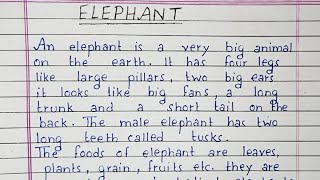 ELEPHANT
An elephant is a very big animal
on the earth. It has four legs
like large pillars, two big ears
it looks like big fans, a long
trunk and a short tail on the
back. The male elephant has two
long teeth called tusks.
The foods of elephant are leaves,
plants, grain, fruits etc. they are